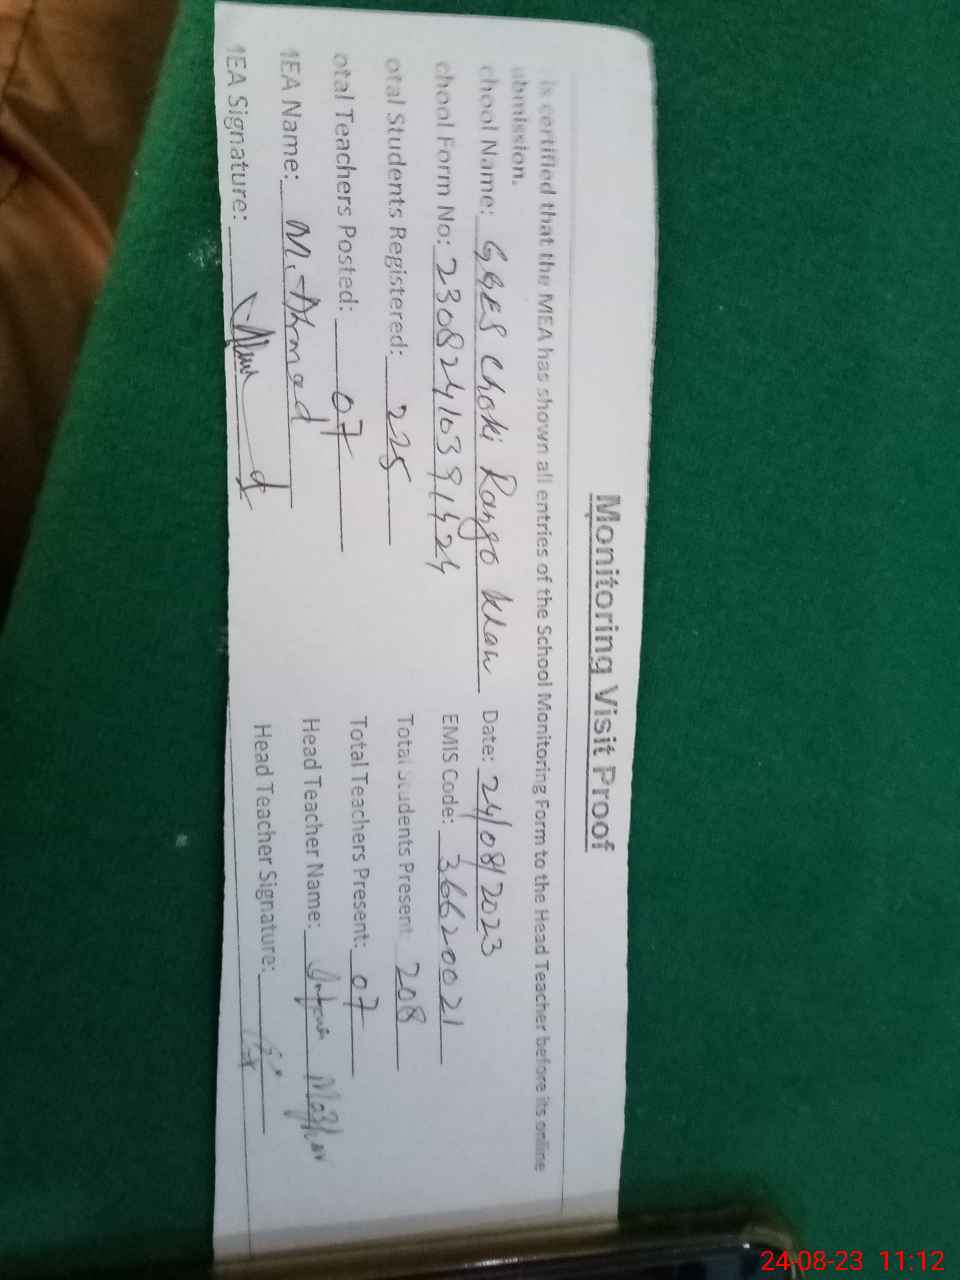 Monitoring Visit Proof
is certified that the MEA has shown all entries of the School Monitoring Form to the Head Teacher before its online
ubmission.
chool Name: GGES Choki Rango Khan Date: 24/08/2023
chool Form No: EMIS Code: 36620021
otal Students Registered: 225 Total Students Present 208
otal Teachers Posted: 07 Total Teachers Present: 07
1EA Name: M. Ahmad Head Teacher Name: Mazhar
1EA Signature: Head Teacher Signature:
24-08-23 11:12